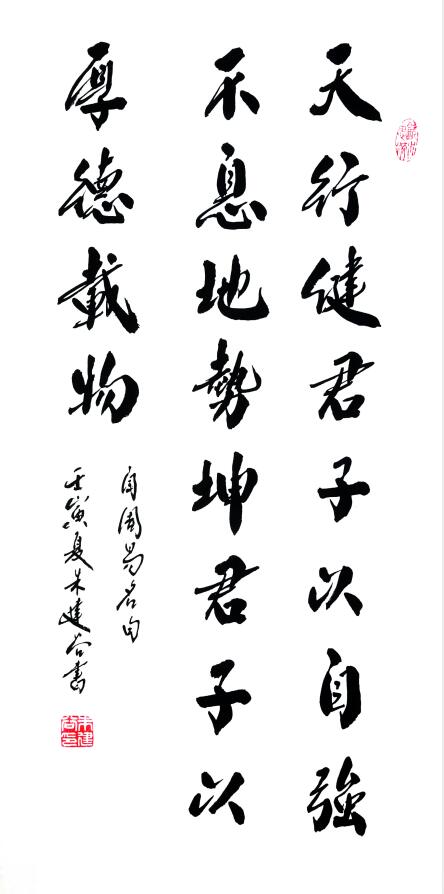 天行健君子以自強
不息地勢坤君子以
厚德載物
自周易名句
壬寅夏朱建谷書